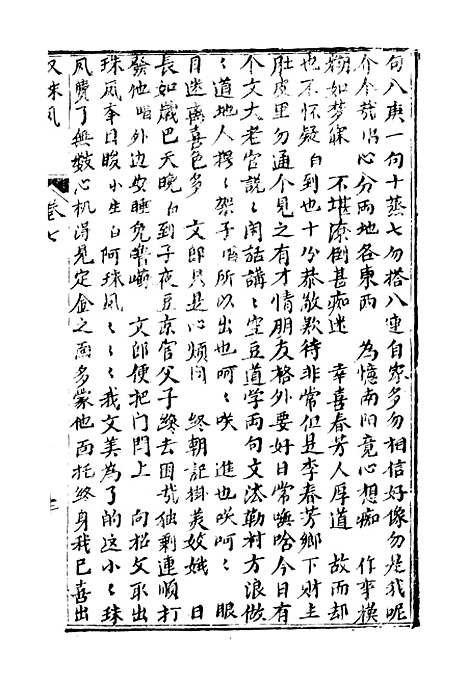 句八庚一句十蒸七勿搭八連自家多勿相信好像勿是我呢
介今哉唱心分兩地各東西 為憶南阳竟心想痴 作事模
糊如梦寐 不堪潦倒甚痴迷 幸喜春芳人厚道 故而却
也不怀疑白到也十分恭敬欵待非常但是李春芳鄉下財主
肚皮里勿通个見之有才情朋友格外要好日常嘸啥今日有
个文大老官説〻閑話講〻空豆道学兩句文法勒村方浪做
〻道地人撑〻架子唱所以出也呵〻咲 進也咲呵〻 眼
目迷离喜色多 文郎只是心煩悶 終朝記掛美姣娥 日
長如歲巴天晚白到子夜豆京官父子終去困哉独剩連順打
發他唱外边安睡免囉唣 文郎便把门閂上 向招文取出
珠凤牽白睃小生白阿珠凤〻〻我文美為了的这小〻珠
凤費了無数心机得見定金之面多蒙他面托終身我已喜出
双珠凤 卷七 三